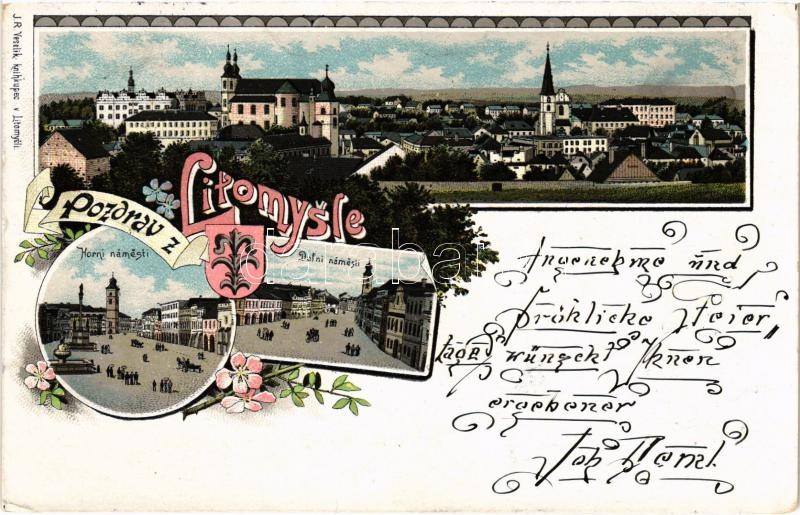 J. R. Veselík, knihkupec v Litomyšli.
Pozdrav z
Litomyšle
Horní náměstí
Dolní náměstí
darabanth
Angenehme und
fröhliche Feier
tage wünscht Ihnen
ergebener
Joh